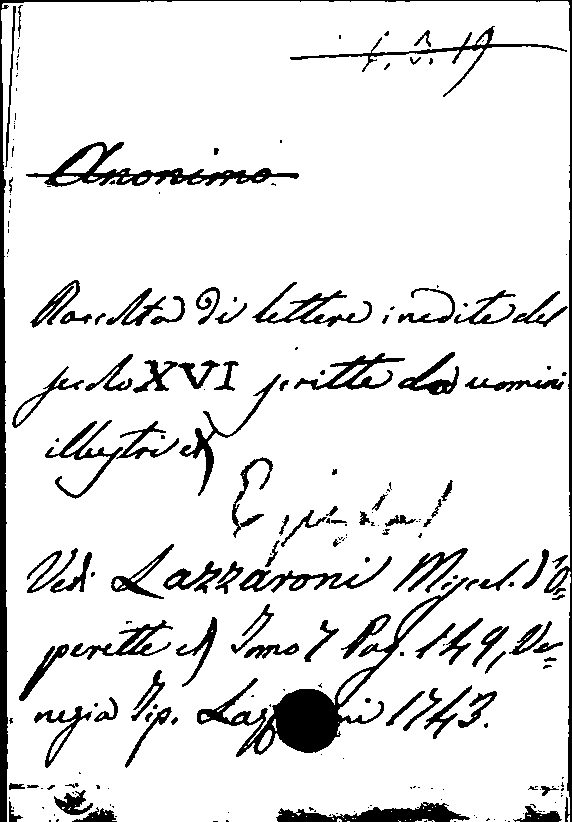 1. B. 19
Anonimo
Raccolta di lettere inedite del
secolo XVI scritte da uomini
illustri ec
Epistol
Vedi Lazzaroni Miscel. d'O=
perette ec Tomo 7 Pag. 149, Ve=
negia Tip. Lazzaroni 1743.